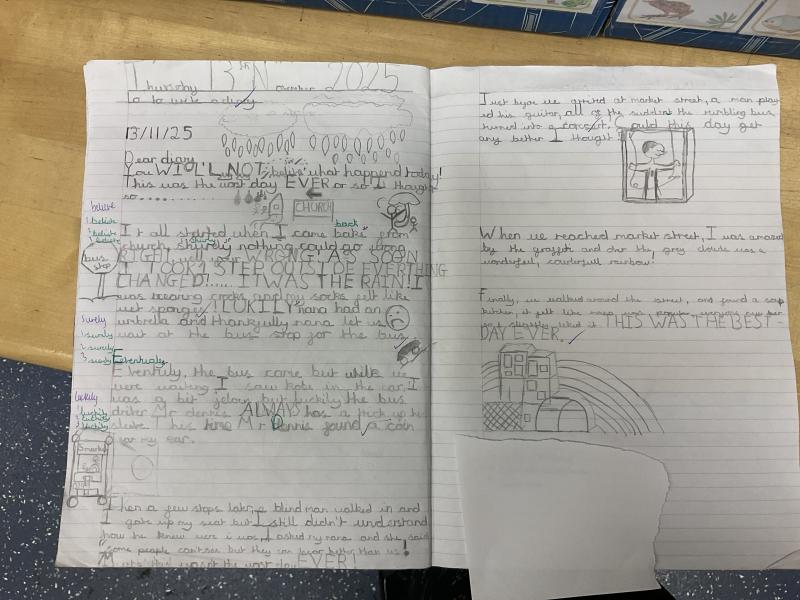 Thursday 13th November 2025
to write a diary
13/11/25
Dear diary
You WIOLL NOT believ what happend today!
This was the worst day EVER or so I thought
so..........
CHURCH
believe
1. believe
2. believe
3. believe
back
It all started when I came bake from
church, shurely nothing could go wrong
RIGHT, well your WRONG! AS SOON
I TOOK A STEP OUTSIDE EVERYTHING
CHANGED!..... IT WAS THE RAIN! I
was wearing crocks and my socks felt like
wet sponges! LOKILY nana had an
umbrella and thankyully nana let us
wait at the bus stop for the bus
bus
stop
surely
1. surely
2. surely
3. surely
Eventually
Eventily, the bus came but while we
were waiting I saw kids in the car, I
was a bit jelous but luckily the bus
driver Mr dennis ALWAYS has a trick up his
sleeve. This time Mr Dennis found a coin
in my ear.
luckily
1. luckily
2. luckily
3. luckily
Then a few stops later, a blind man walked in and
I gave up my seat but I still didn't understand
how he knew were i was, I asked my nana and she said
"some people cant see but they can hear better than us!
this wasn't the worst day EVER!
Just before we arrived at market street, a man play
ed his guitar, all of the sudden the rumbling bus
turned into a concert. Could this day get
any better I thought!
When we reached market street, I was amazed
by the graffiti and over the grey clouds was a
wonderfull, colourfull rainbow!
Finally, we walked around the street, and found a soup
kitchen, it felt like
THIS WAS THE BEST
DAY EVER.